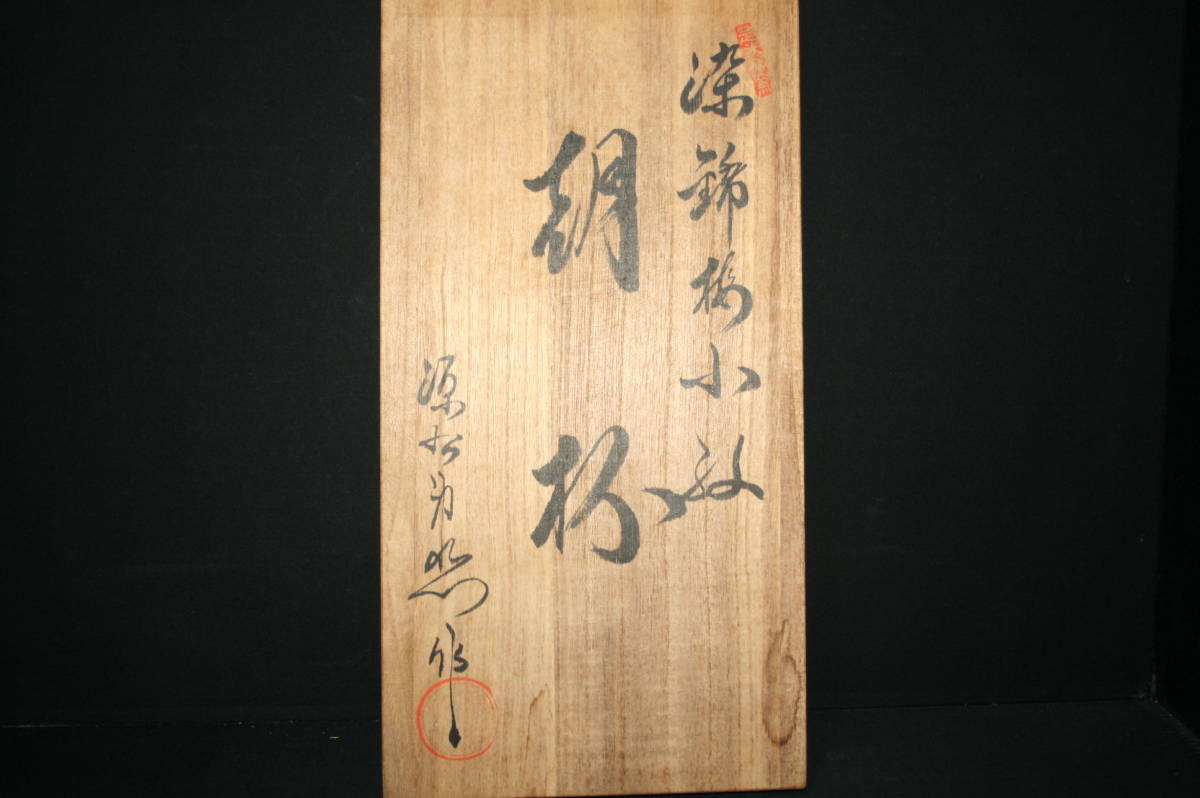 染錦梅小紋
朝杯
源右衛門作